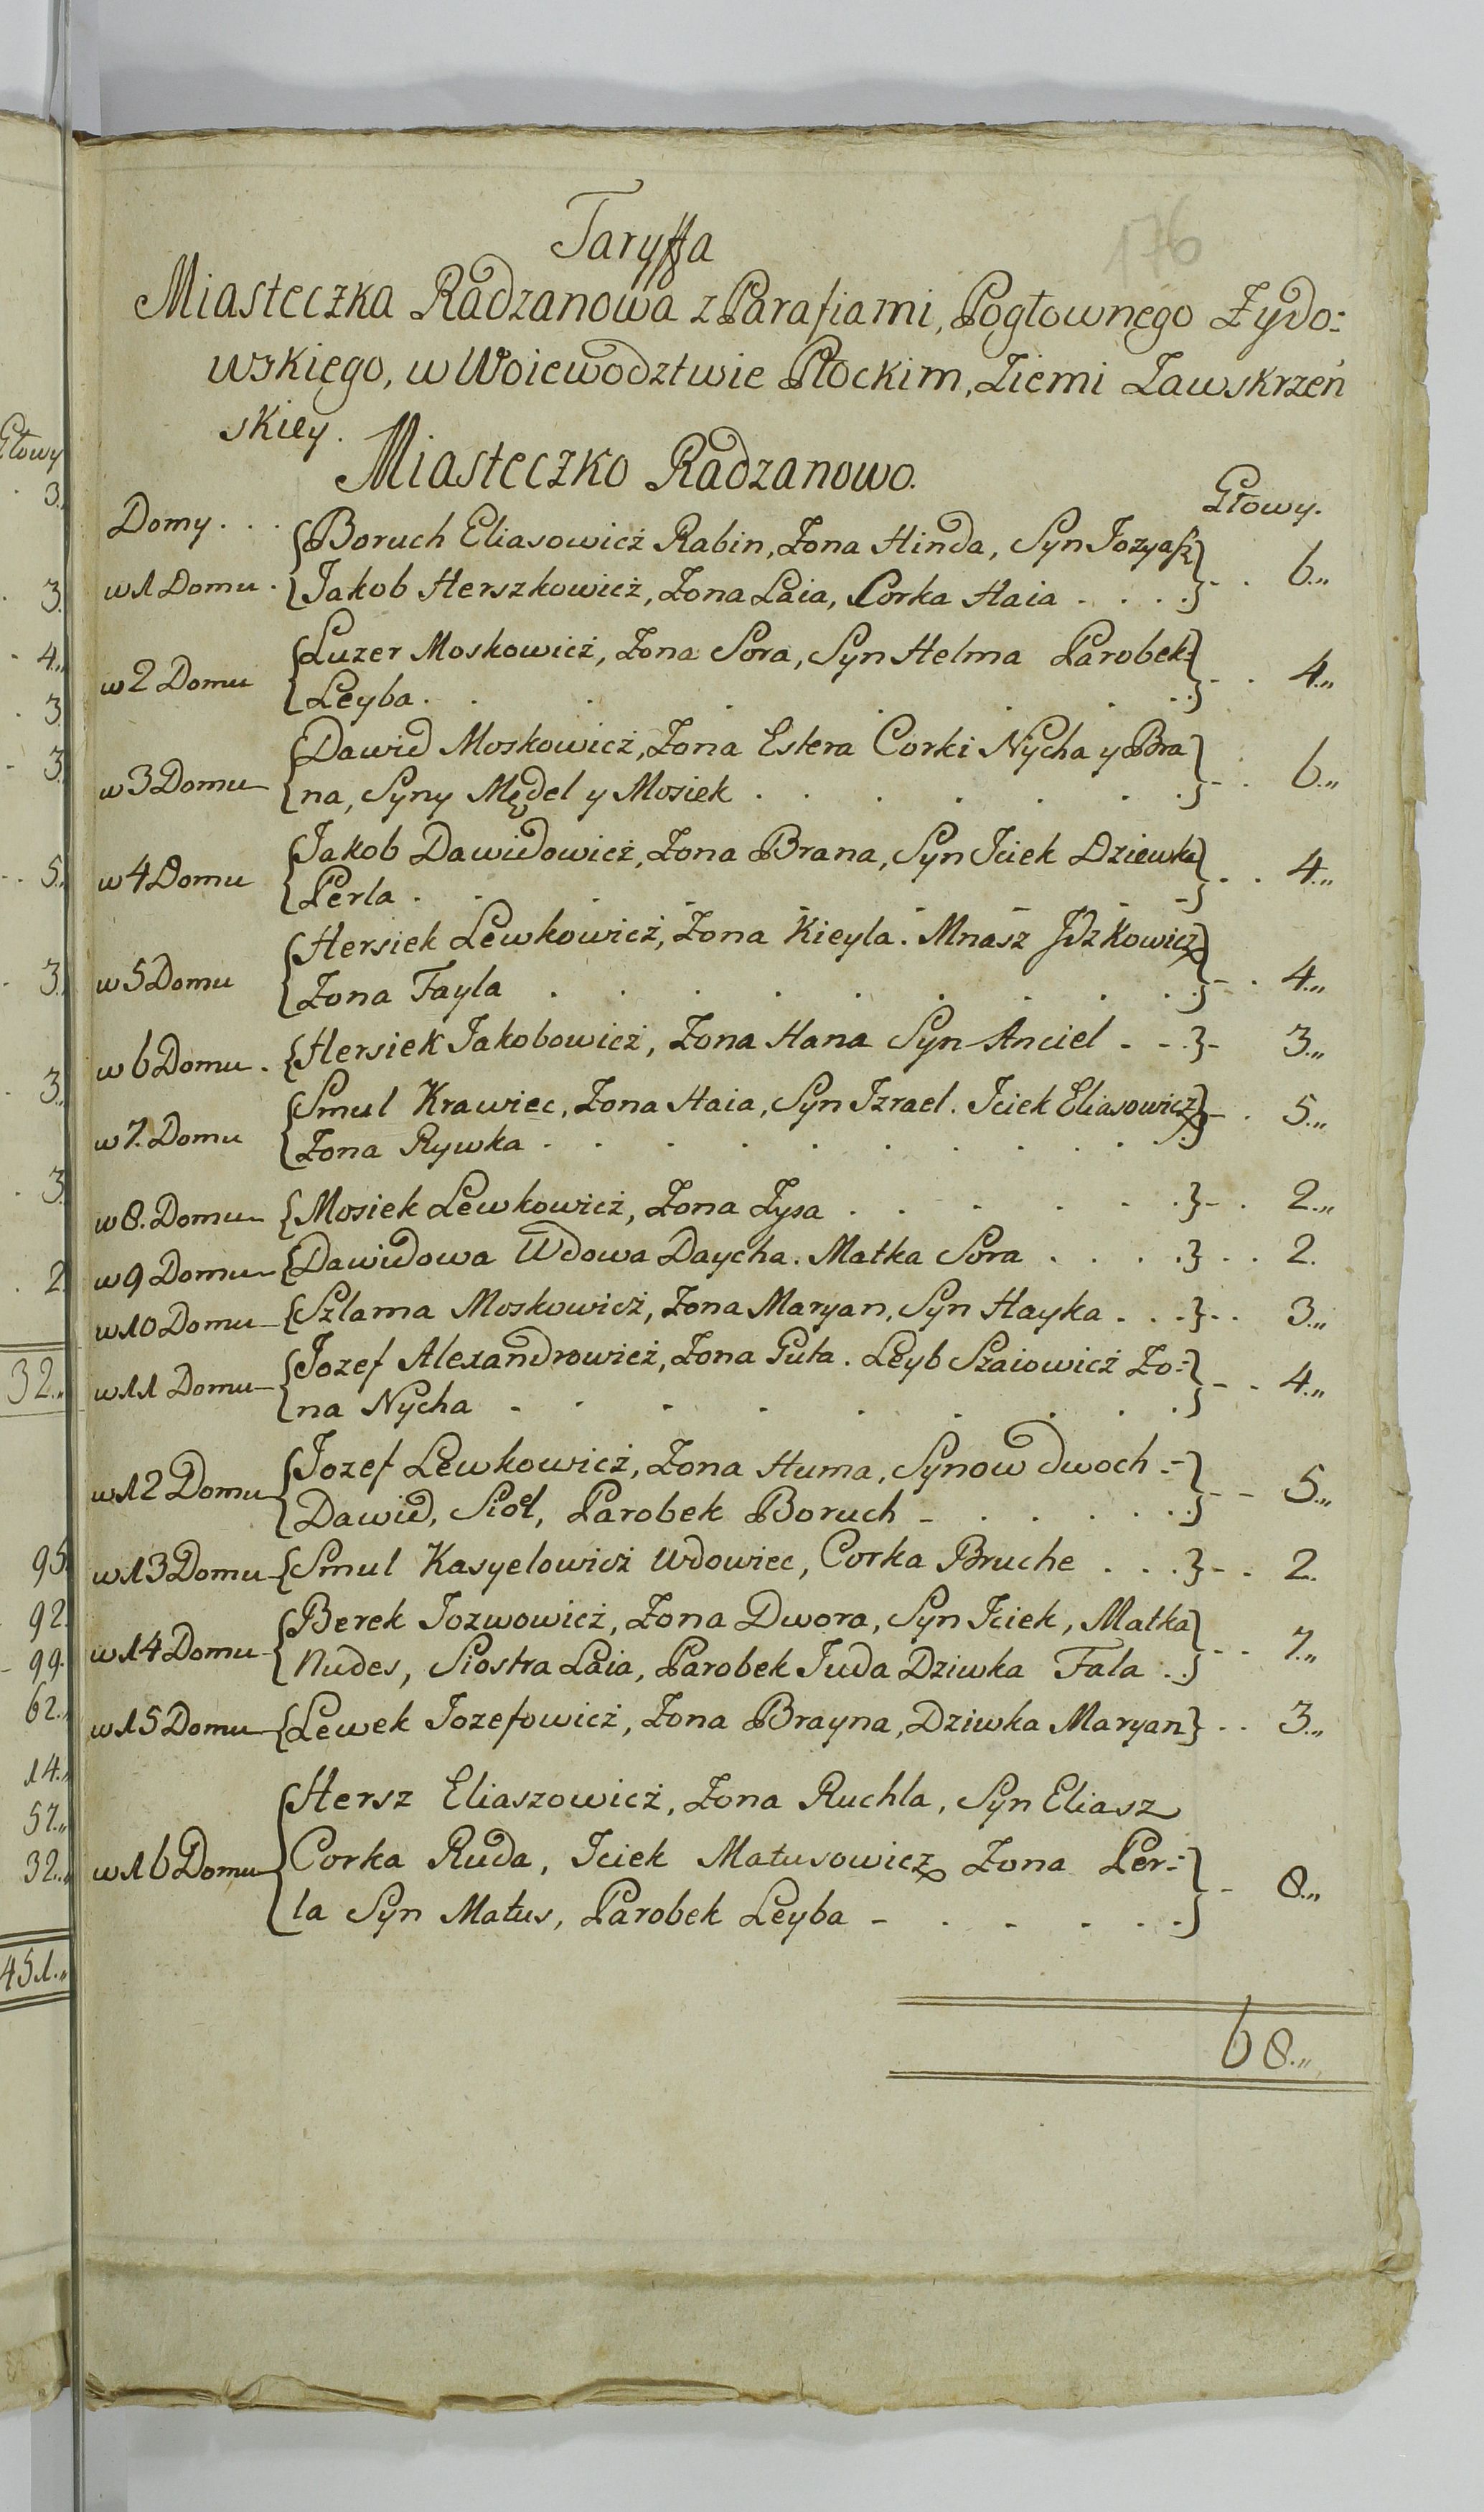 176
Taryffa
Miasteczka Radzanowa z Parafiami, Pogłownego Żydo=
wskięgo, w Woiewodztwie Płockim, Ziemi Zawskrzeń
skiey.
Miasteczko Radzanowo.
Domy . . . Głowy.
w 1 Domu . {Boruch Eliasowicż Rabin, Zona Hinda, Syn Jozyasz
Jakob Herszkowicż, Zona Laia, Corka Haia . . . .} - . 6.„
w 2 Domu {Luzer Moskowicż, Zona Sora, Syn Helma Parobek=
Leyba . . . . . . . .} - . 4.„
w 3 Domu {Dawid Moskowicż, Zona Estera Corki Nycha y Bra
na, Syny Mędel y Mosiek . . . . . . .} - . 6.„
w 4 Domu {Jakob Dawidowicż, Zona Brana, Syn Jciek Dziewka
Perla . . . . . . . -} . . 4.„
w 5 Domu {Hersiek Lewkowicż, Zona Kieyla. Mnasz Jdzkowicz
Zona Fayla . . . . . . . . .} - . 4.„
w 6 Domu . {Hersiek Jakobowicż, Zona Hana Syn Anciel - - .} - 3.„
w 7. Domu {Smul Krawiec, Zona Haia, Syn Izrael. Jciek Eliasowicz
Zona Rywka . . . . . . . . .} - . 5.„
w 8. Domu {Mosiek Lewkowicż, Zona Zysa . . . . . .} - . 2.„
w 9 Domu {Dawidowa Wdowa Daycha. Matka Sora . . . .} . . 2.
w 10 Domu {Szlama Moskowicż, Zona Maryan, Syn Hayka . . .} - . 3.„
w 11 Domu {Jozef Alexandrowicż, Zona Guta. Leyb Szaiowicż Zo=
na Nycha - . . . . . . . .} - . 4.„
w 12 Domu {Jozef Lewkowicż, Zona Huma, Synow dwoch =
Dawid, Sioł, Parobek Boruch - . . . . .} - - 5.„
w 13 Domu {Smul Kasyelowicż Wdowiec, Corka Bruche . . .} - . 2.
w 14 Domu {Berek Jozwowicż, Zona Dwora, Syn Jciek, Matka
Nudes, Siostra Laia, Parobek Juda Dziwka Fala . .} - . 7.„
w 15 Domu {Lewek Jozefowicż, Zona Brayna, Dziwka Maryan} . . 3.„
w 16 Domu {Hersz Eliaszowicż, Zona Ruchla, Syn Eliasz
Corka Ruda, Jciek Matusowicz Zona Per=
la Syn Matus, Parobek Leyba - . . . . .} - 8.„
68.„
Głowy
3.
3.
4.„
3
3.
5.„
3.
3.„
3.
2.
32.„
95.
92.
99.
62.„
14.„
57.„
32.„
451.„